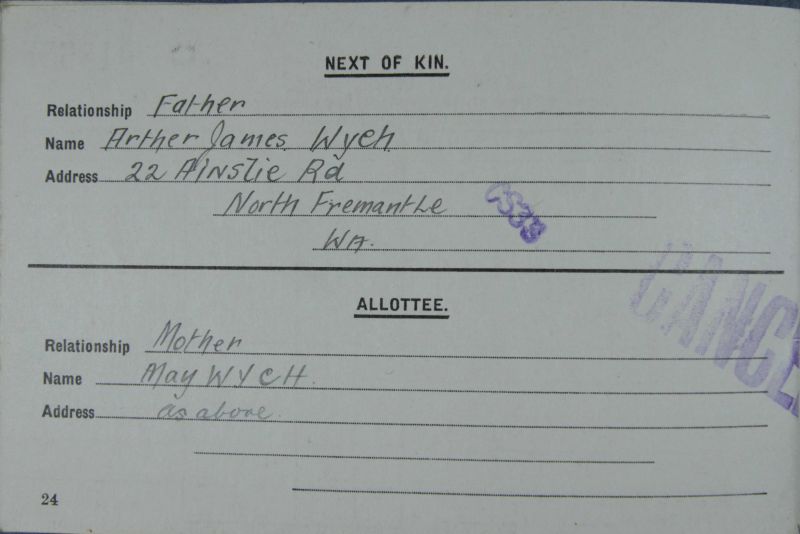 NEXT OF KIN.
Relationship Father
Name Arther James Wych
Address 22 Ainslie Rd
North Fremantle
WA.
CS39
CANCE
ALLOTTEE.
Relationship Mother
Name May WYCH.
Address as above.
24